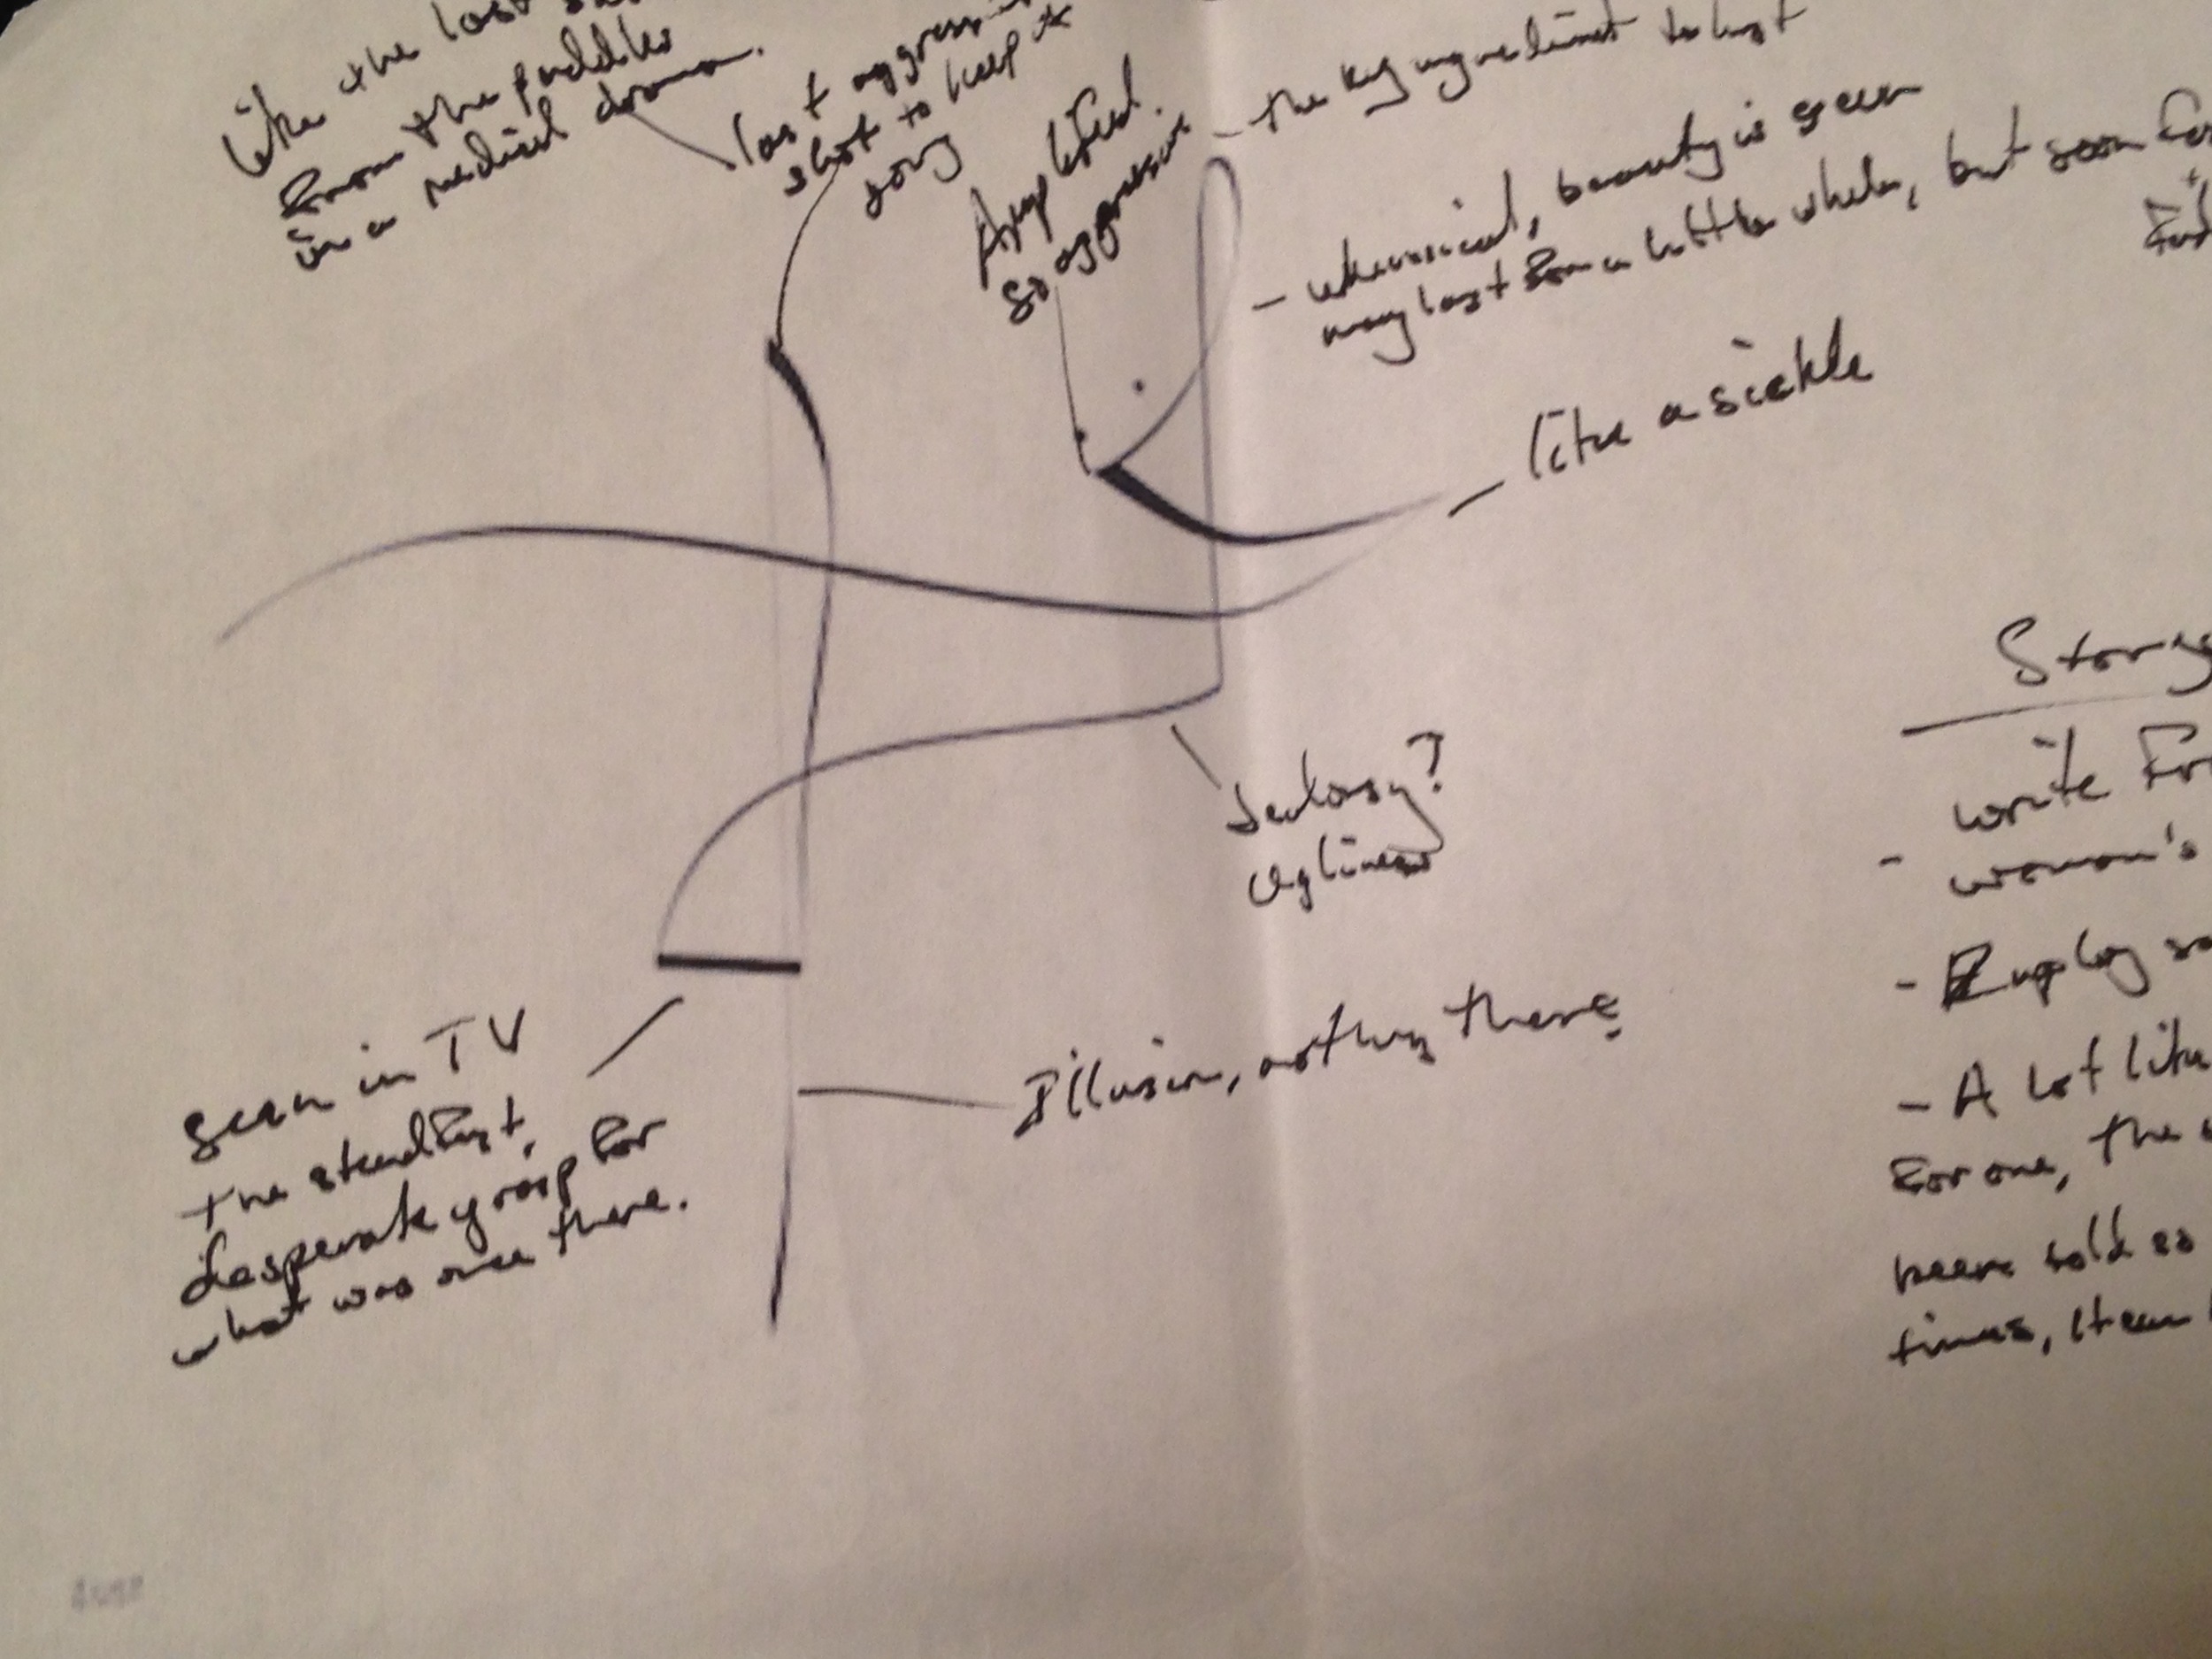 like the last
from the paddles
in a medical drama.
last aggressive
shot to keep it
going
Amplified.
so aggressive
- the key ingredient to lust
- whimsical, beauty is seen
may last for a little while, but soon
- like a sickle
Jealousy?
ugliness
seen in TV
the steadfast,
desperate grasp for
what was once there.
Illusion, nothing there
Story
write
- woman's
- Employ
- A lot like
For one, the
been sold so
times, it can